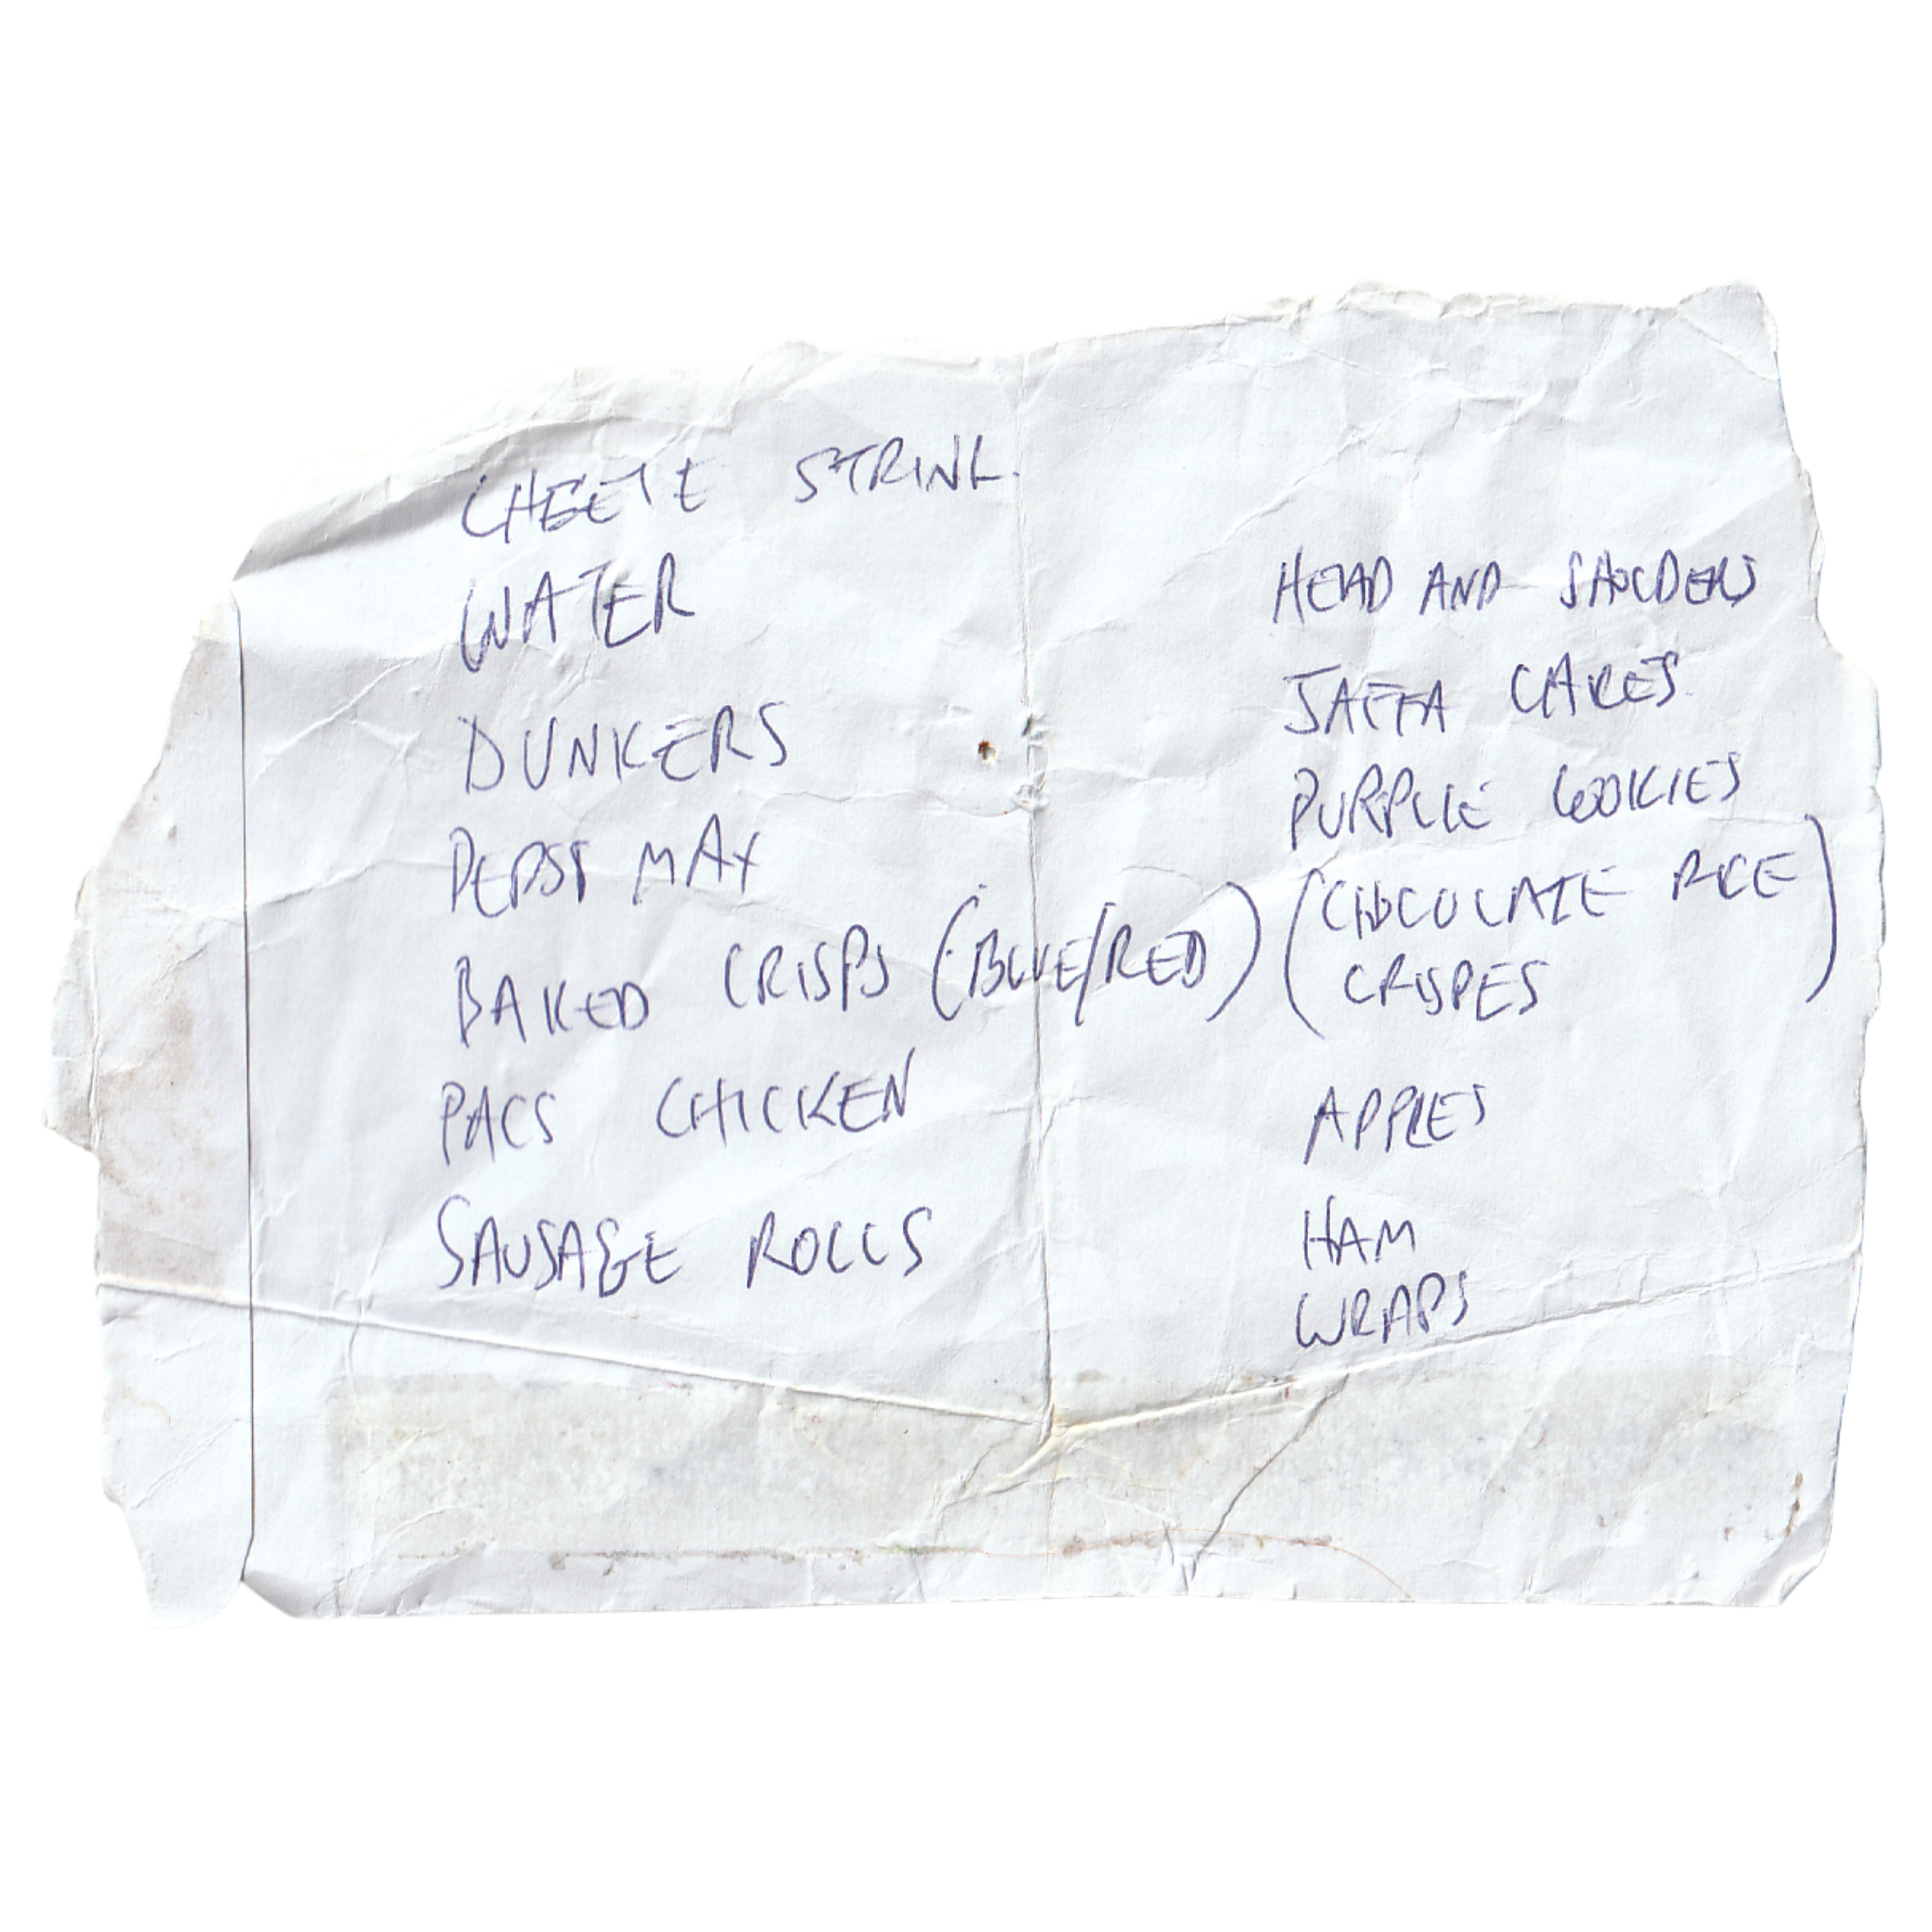 CHEESE STRING
WATER
DUNKERS
PEPSI MAX
BAKED CRISPS (BLUE/RED)
PACS CHICKEN
SAUSAGE ROLLS
HEAD AND SHOULDERS
JAFFA CAKES
PURPLE COOKIES
(CHOCOLATE RICE
CRISPES)
APPLES
HAM
WRAPS